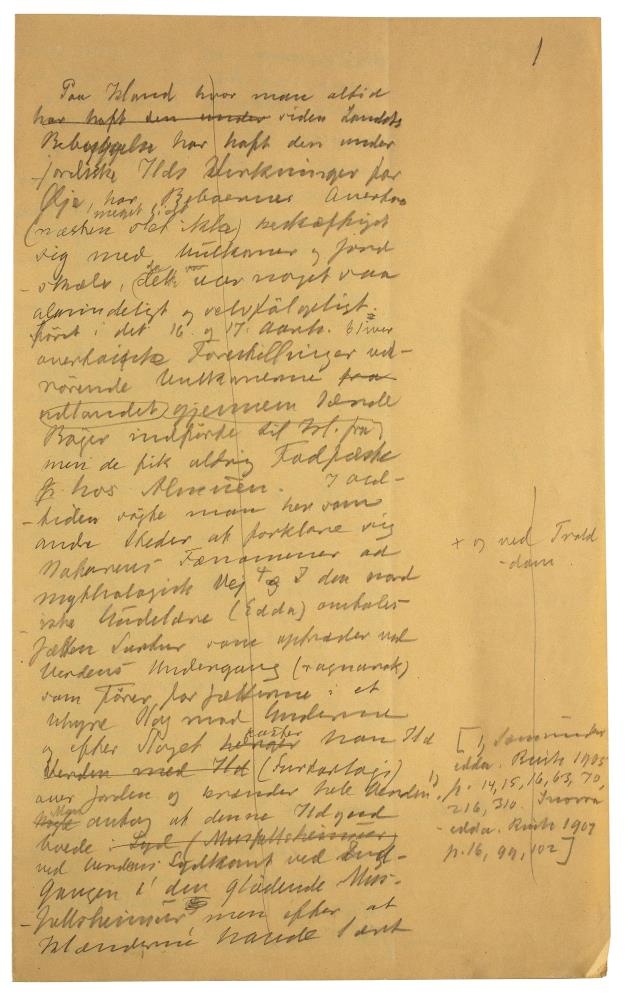 1
Paa Island hvor man altid
har haft den under siden Landets
Bebyggelse har haft den under
jordiske Ilds Virkninger for
Øje, har Beboernes
meget lidt
(næsten slet ikke) beskæftiget
sig med Vulkaner og Jord
-skælv, det var noget saa
almindeligt og selvfølgeligt.
Først i det 16. og 17. Aarh. bliver
Forestillinger ved-
rørende Vulkanerne fra
udlandet gjennem lærde
Bøger indførte til Isl. fra
men de fik aldrig Fodfæste
hos Almuen. I Old-
-tiden søgte man her som
andre Steder at forklare sig
Naturens Fænomener ad
mythologisk Vej + og I den nord
iske Gudelære (Edda) omtales
Jætten Surtur som optræder ved
Verdens Undergang (ragnarok)
som Fører for Jætterne i et
uhyre Slag mod Guderne
og efter Slaget kaster han Ild
Verden med Ild (Surtarlogi)
over Jorden og brænder hele Verden 1)
antog at denne Ildgud
boede i Syd (Muspellsheimur)
ved Verdens Sydkant ved Ind-
gangen i den glødende Mus-
-pellsheimur men efter at
Islænderne havde lært
+ og ved Trold
-dom.
[1) Sæmundar
edda. Rvik 1905
p. 14, 15, 16, 63, 70,
216, 310. Snorra
-edda. Rvik 1907
p. 16, 99, 102]